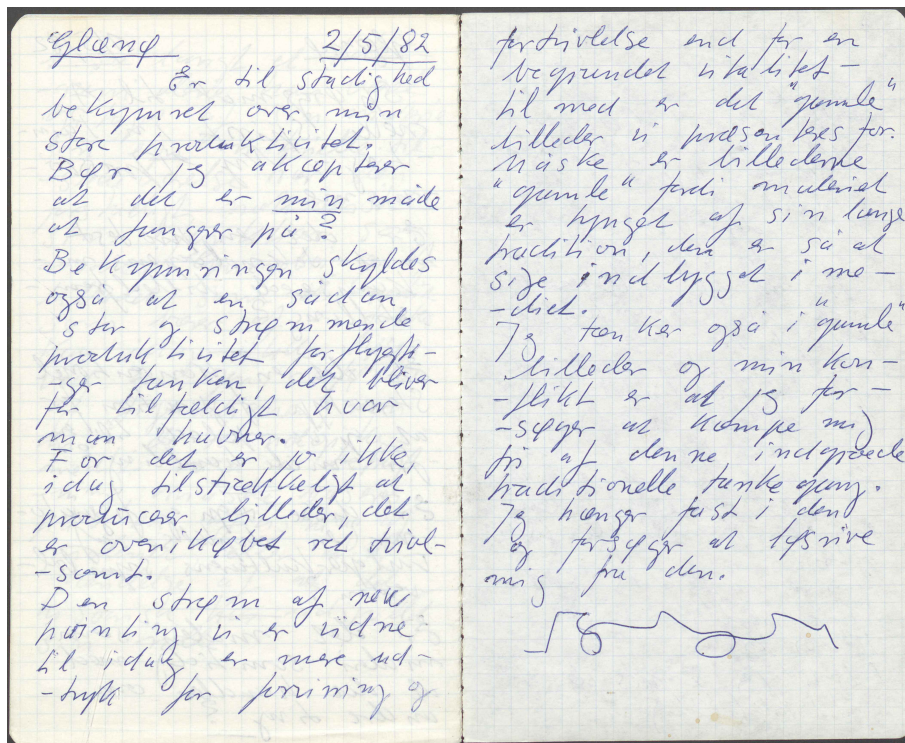 Glænø 2/5/82
Er til stadighed
bekymret over min
store produktivitet.
Bør jeg akceptere
at det er min måde
at fungere på?
Bekymringen skyldes
også at en sådan
stor og strømmende
produktivitet forflygti-
-ger tanken, det bliver
for tilfældigt hvor
man havner.
For det er jo ikke,
idag tilstrækkeligt at
producere billeder, det
er ovenikøbet ret tvivl-
-somt.
Den strøm af new
painting vi er vidne
til idag er mere ud-
-tryk for forvirring og
fortvivlelse end for en
begrundet vitalitet -
til med er det "gamle"
billeder vi præsenteres for.
Måske er billederne
"gamle" fordi materiet
er tynget af sin lange
tradition, den er så at
sige indbygget i me-
-diet.
Jeg tænker også i "gamle"
billeder og min kon-
-flikt er at jeg for-
-søger at kæmpe mig
fri af denne indgroede
traditionelle tankegang.
Jeg hænger fast i den
og forsøger at løsrive
mig fra den.